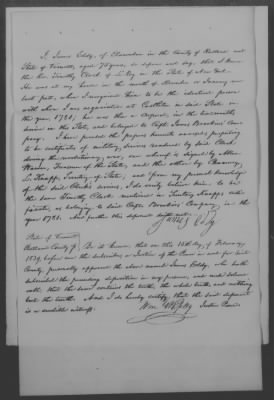 I James Eddy, of Clarendon in the County of Rutland and
State of Vermont, aged 74 years, do depose and say that I know
the Hon Timothy Clark of LeRoy in the State of New York.
He was at my house in the month of December or January
last past, when I recognised him to be the identical person
with whom I was acquainted at Castleton in said State in
the year, 1781, he was then a Corporal, in the nine months
service in this State, and belonged to Capt. James Brookins' Com-
pany. I have perused the papers hereunto annexed purporting
to be certificates of military service rendered by said Clark
during the revolutionary war, one whereof is signed by Allen
, Treasurer of the State, and the other by Chauncey
L. Knapp, Secretary of State, and from my personal knowledge
of the said Clark's service, I do verily believe him to be
the same Timothy Clark mentioned in Secretary Knapp's certi-
ficate, as belonging to said Capt. Brookins' Company, in the
year 1781. And further this deponent saith not.
James Eddy
State of Vermont
Rutland County ss. Be it known, that on this day of February,
1839, before me the subscriber, a Justice of the Peace in and for said
County, personally appeared the above named James Eddy, who hath
subscribed the preceding deposition in my presence, and made solemn
oath that the same contains the truth, the whole truth, and nothing
but the truth. And I do hereby certify, that the said deponent
is a credible witness.
Justice Peace